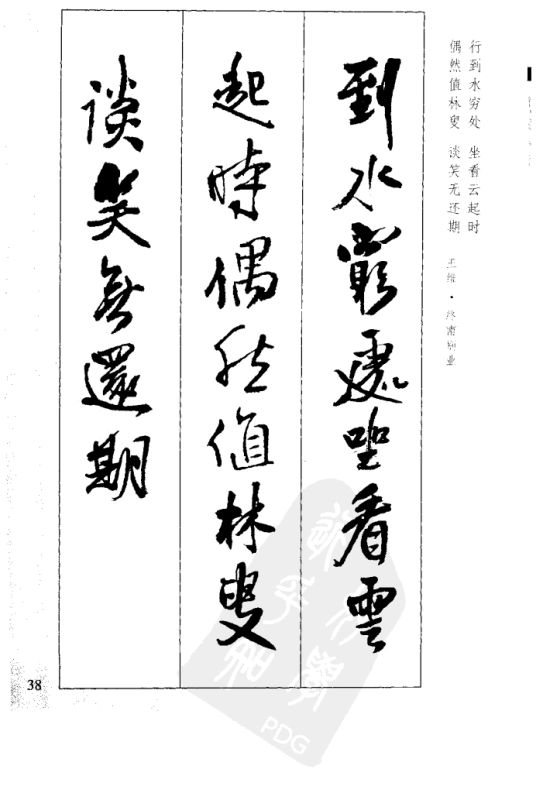 行到水穷处 坐看云起时
偶然值林叟 谈笑无还期
王维·终南别业
到水窮處坐看雲
起時偶然值林叟
談笑無還期
38
PDG